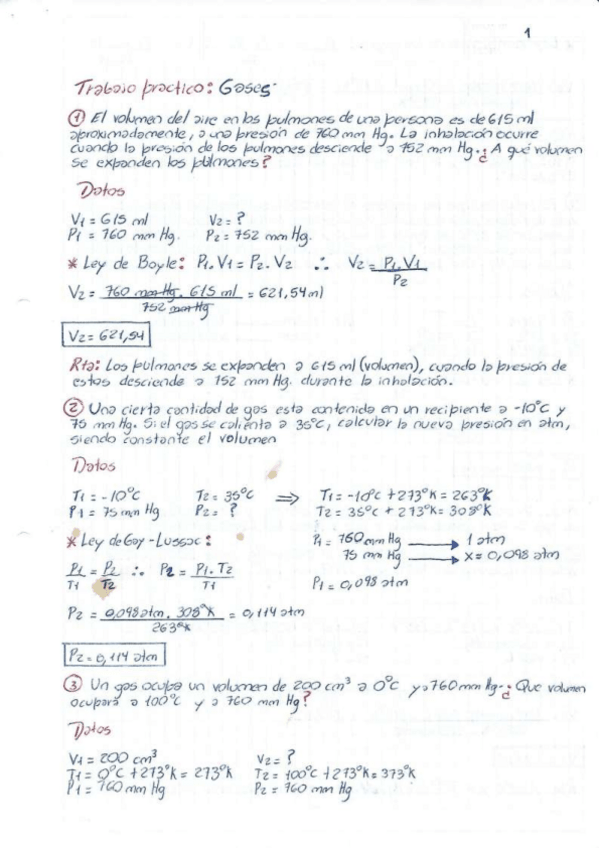 1
Trabajo practico: Gases
① El volumen del aire en los pulmones de una persona es de 615 ml
aproximadamente, a una presión de 760 mm Hg. La inhalación ocurre
cuando la presión de los pulmones desciende a 752 mm Hg. ¿A qué volumen
se expanden los pulmones?
Datos
V1 = 615 ml V2 = ?
P1 = 760 mm Hg. P2 = 752 mm Hg.
* Ley de Boyle: P1.V1 = P2.V2 ∴ V2 = P1.V1
P2
V2 = 760 mm Hg. 615 ml = 621,54 ml
752 mm Hg
V2 = 621,54
Rta: Los pulmones se expanden a 615 ml (volumen), cuando la presión de
estos desciende a 752 mm Hg. durante la inhalación.
② Una cierta cantidad de gas esta contenida en un recipiente a -10°C y
75 mm Hg. Si el gas se calienta a 35°C, calcular la nueva presión en atm,
siendo constante el volumen
Datos
T1 = -10°C T2 = 35°C ⟹ T1 = -10°C + 273°K = 263°K
P1 = 75 mm Hg P2 = ? T2 = 35°C + 273°K = 308°K
* Ley de Gay-Lussac: P1 = 760 mm Hg → 1 atm
75 mm Hg → x = 0,098 atm
P1 = P2 ∴ P2 = P1.T2
T1 T2 T1
P1 = 0,098 atm
P2 = 0,098 atm. 308°K = 0,114 atm
263°K
P2 = 0,114 atm
③ Un gas ocupa un volumen de 200 cm³ a 0°C y a 760 mm Hg. ¿Que volumen
ocupará a 100°C y a 760 mm Hg?
Datos
V1 = 200 cm³ V2 = ?
T1 = 0°C + 273°K = 273°K T2 = 100°C + 273°K = 373°K
P1 = 760 mm Hg P2 = 760 mm Hg